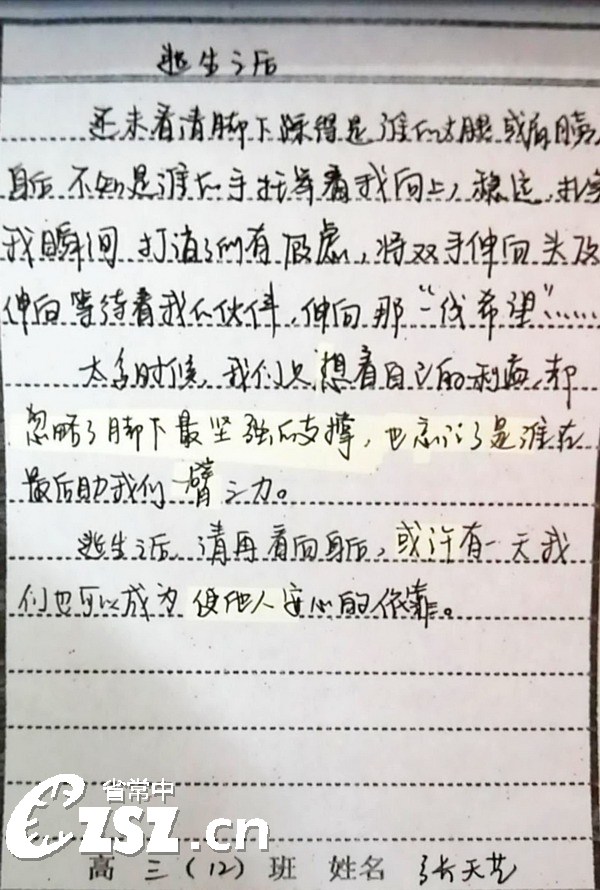 逃生之后
还未看清脚下踩得是谁的大腿或肩膀,
身后不知是谁的手托举着我向上,稳远,扎实
我瞬间打消了所有顾虑,将双手伸向头顶
伸向等待着我的伙伴,伸向那“一线希望”……
太多时候,我们只想着自己的利益,却
忽略了脚下最坚强的支撑,也忘记了是谁在
最后助我们一臂之力。
逃生之后,请再看向身后,或许有一天我
们也可以成为使他人安心的依靠。
省常中
CZSZ.cn
高三(12)班 姓名 张天艺